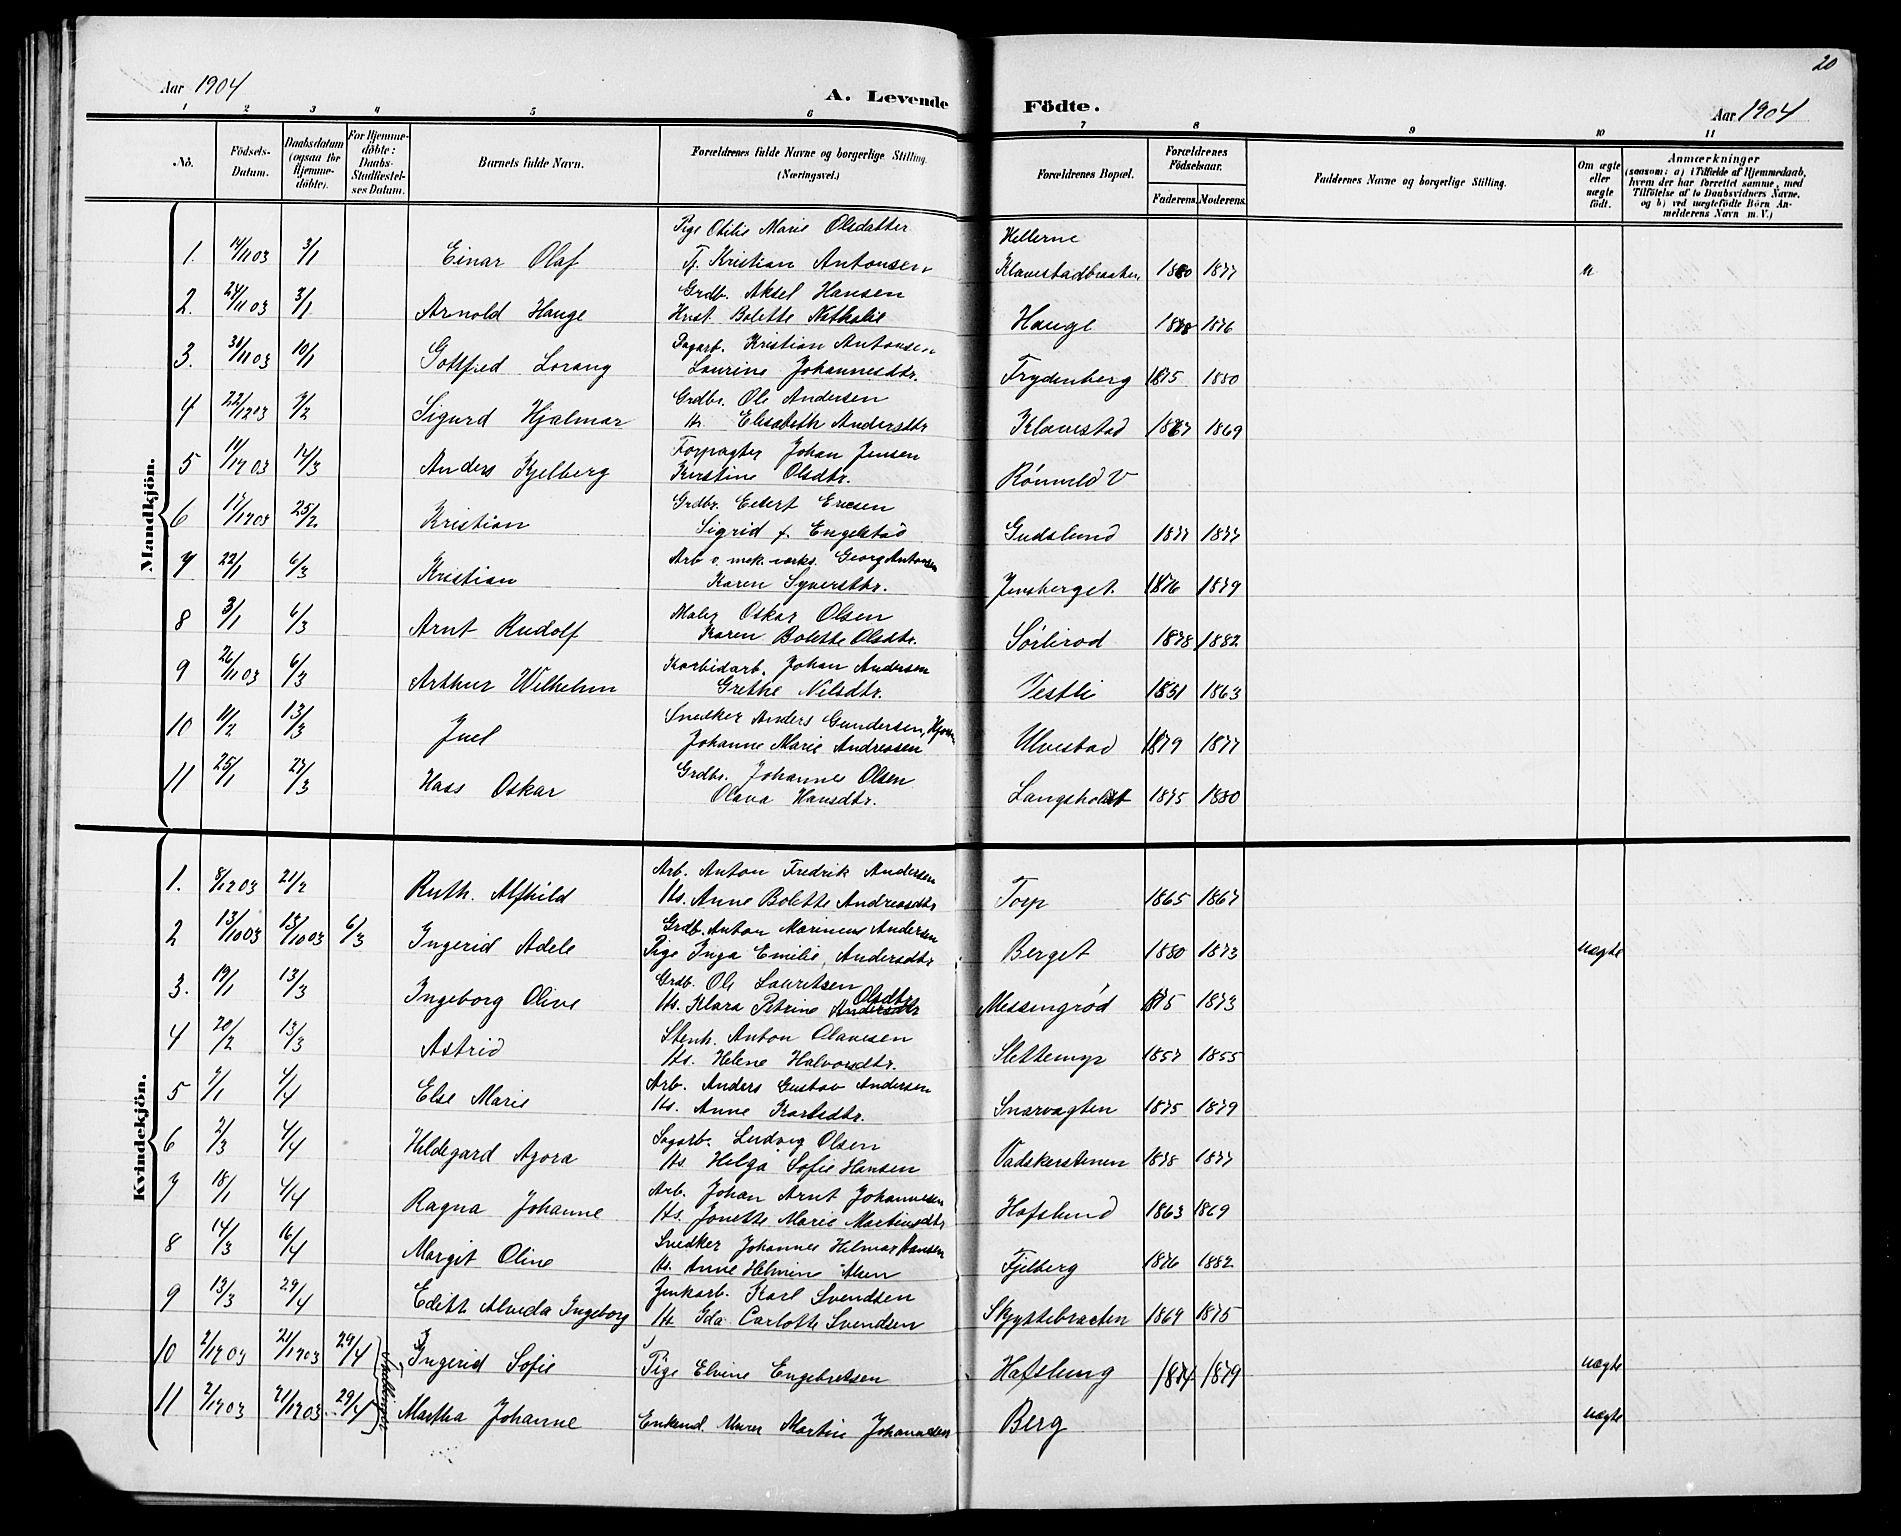 20
Aar 1904
A. Levende Födte.
Aar 1904
1 2 3 4 5 6 7 8 9 10 11
No.
Födsels-Datum.
Daabsdatum (ogsaa for Hjemmedöbte).
For Hjemmedöbte: Daabs-Stadfæstelses Datum.
Barnets fulde Navn.
Forældrenes fulde Navne og borgerlige Stilling. (Næringsvei.)
Forældrenes Bopæl.
Forældrenes Födselsaar.
Faderens. Moderens.
Faddernes Navne og borgerlige Stilling.
Om ægte eller uægte födt.
Anmærkninger
(saasom: a) i Tilfælde af Hjemmedaab, hvem der har forrettet samme, med Tilföielse af to Daabsvidners Navne, og b) ved uægtefödte Börn Anmelderens Navn m. V.)
Mandkjön.
Pige Otilie Marie Olsdatter Hellerne
1. 14/11 03 3/1 Einar Olaf Tj. Kristian Antonsen Klavestadbraaten 1880 1877 u
Grdb. Aksel Hansen
2. 24/11 03 3/1 Arnold Hauge Hust. Bolette Nathalie Hauge 1878 1876
Sagarb. Kristian Antonsen
3. 30/11 03 10/1 Gottfred Lorang Laurine Johannesdtr. Frydenberg 1875 1880
Grdbr. Ole Andersen
4 22/12 03 7/2 Sigurd Hjalmar H. Elisabeth Andersdtr Klavestad 1867 1869
Forpagter Johan Jensen
5 11/12 03 12/3 Anders Kjelberg Kirstine Olsdtr. Rönneld V
Grdbr. Edert Ericsen
6 17/12 03 25/2 Kristian Sigrid f. Engelstad Gudslund 1877 1877
Arb v. mek. værks. Georg Antonsen
7 22/1 6/3 Kristian Karen Syverstdr. Jensberget. 1876 1879
Maler Oskar Olsen
8 3/1 6/3 Arnt Rudolf Karen Bolette Olsdtr. Sörlirod 1878 1882
Karbidarb. Johan Andersen
9 26/11 03 6/3 Arthur Wilhelm Grethe Nilsdtr. Vestli 1851 1863
Snedker Anders Gundersen,
10 11/2 13/3 Juel Johanne Marie Andreasen Ulvestad 1879 1877
Grdbr. Johannes Olsen
11 25/1 27/3 Hans Oskar Olava Hansdtr. Langsholdt 1875 1880
Kvindekjön.
Arb. Anton Fredrik Andersen
1. 8/12 03 21/2 Ruth Alfhild Hs. Anne Bolette Andreasdtr Torp 1865 1867
Grdb. Anton Marinius Andersen
2 13/10 03 18/10 03 6/3 Ingerid Adele Pige Inga Emilie Andersdtr Berget 1880 1873 uægte
Grdb. Ole Lauritsen
Olsdtr
3. 19/1 13/3 Ingeborg Olive Hs. Klara Petrine Andersdtr Messingröd 1875 1873
Stenh. Anton Olavesen
4 20/2 13/3 Astrid Hs. Helene Halvorsdtr. Slettemyr 1857 1855
Arb. Anders Gustav Andersen
5 7/1 4/4 Else Marie Hs. Anne Karlsdtr. Snarvagten 1875 1879
Sagarb. Ludvig Olsen
6 2/3 4/4 Hildegard Agora Hs. Helga Sofie Hansen Vadskerstenen 1878 1877
Arb. Johan Arnt Johannesen
7 18/1 4/4 Ragna Johanne Hs. Jonette Marie Martinsdtr Hafslund 1863 1869
Snedker Johannes Hilmar Hansen
8 14/3 16/4 Margit Oline Hs. Anne Helmine Olsen Fjelberg 1876 1882
Zinkarb. Karl Svendsen
9 13/3 29/4 Edith Alvida Ingeborg H. Ida Carlotte Svendsen Skyttebraaten 1869 1875
10 2/12 03 21/12 03 29/4 Ingerid Sofie Pige Elvine Engebretsen Hafslung 1874 1879 uægte
11 2/12 03 21/12 03 29/4 Martha Johanne Enkemd. Murer Martin Johannesen Berg uægte
Tvillinger